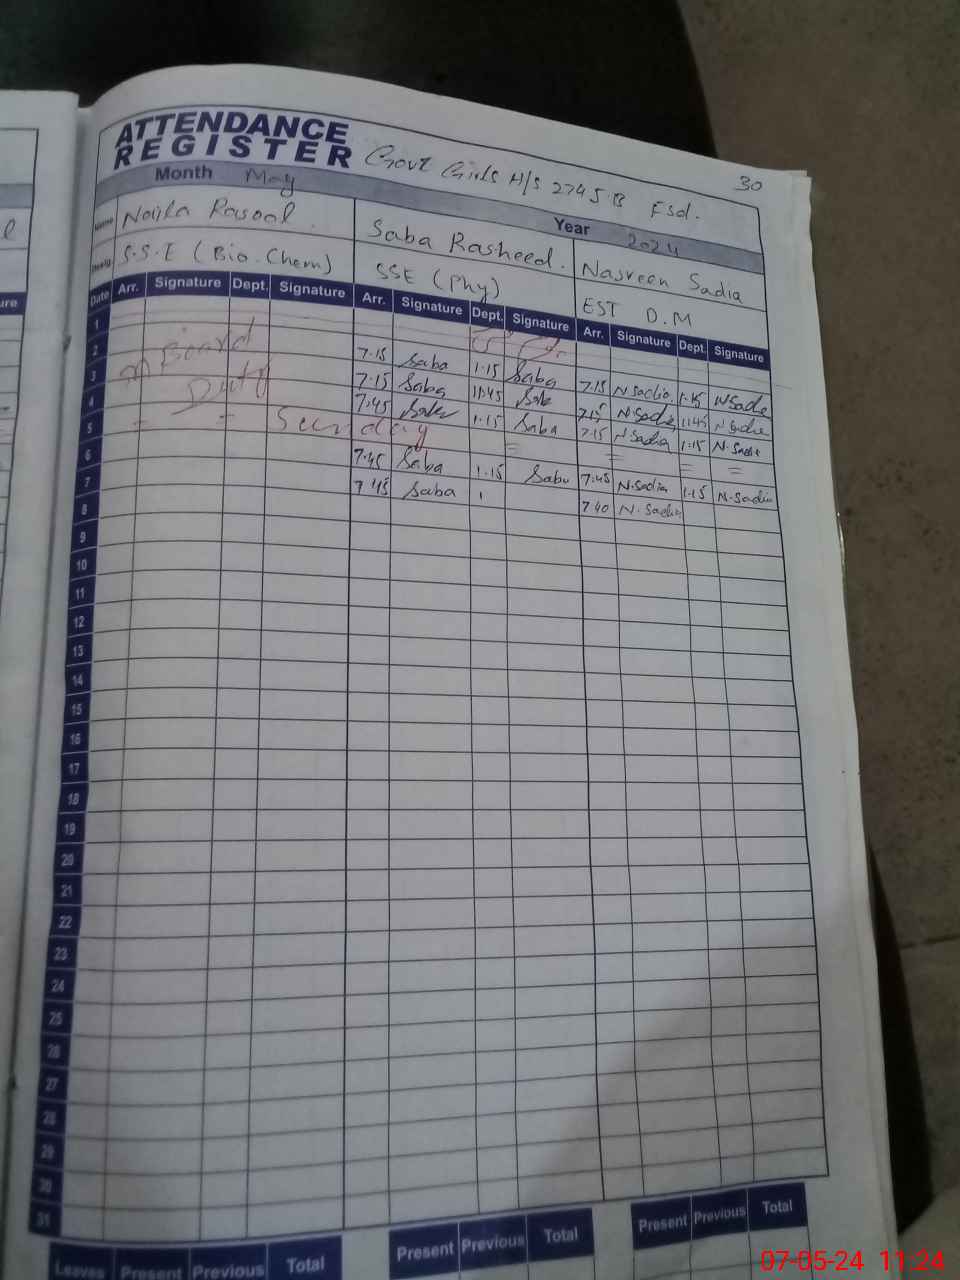 ATTENDANCE
REGISTER Govt Girls H/S 274 J.B Fsd. 30
Month May Year 2024
Name Naila Rasool. Saba Rasheed. Nasreen Sadia
Desig S.S.E (Bio.Chem) SSE (Phy) EST D.M
Date Arr. Signature Dept. Signature Arr. Signature Dept. Signature Arr. Signature Dept. Signature
1
2 Board 7.15 Saba 1.15 Saba 7.15 N Sadia 1.15 N Sadia
3 Duty 7.15 Saba 11.45 Saba 7.15 N Sadia 11.45 N Sadia
4 7.45 Saba 1.15 Saba 7.15 N Sadia 1.15 N. Sadia
5 - - Sunday = = = =
6 7.45 Saba 1.15 Saba 7.45 N.Sadia 1.15 N.Sadia
7 7.45 Saba 7.40 N. Sadia
8
9
10
11
12
13
14
15
16
17
18
19
20
21
22
23
24
25
26
27
28
29
30
31
Leaves Present Previous Total Present Previous Total Present Previous Total
07-05-24 11:24